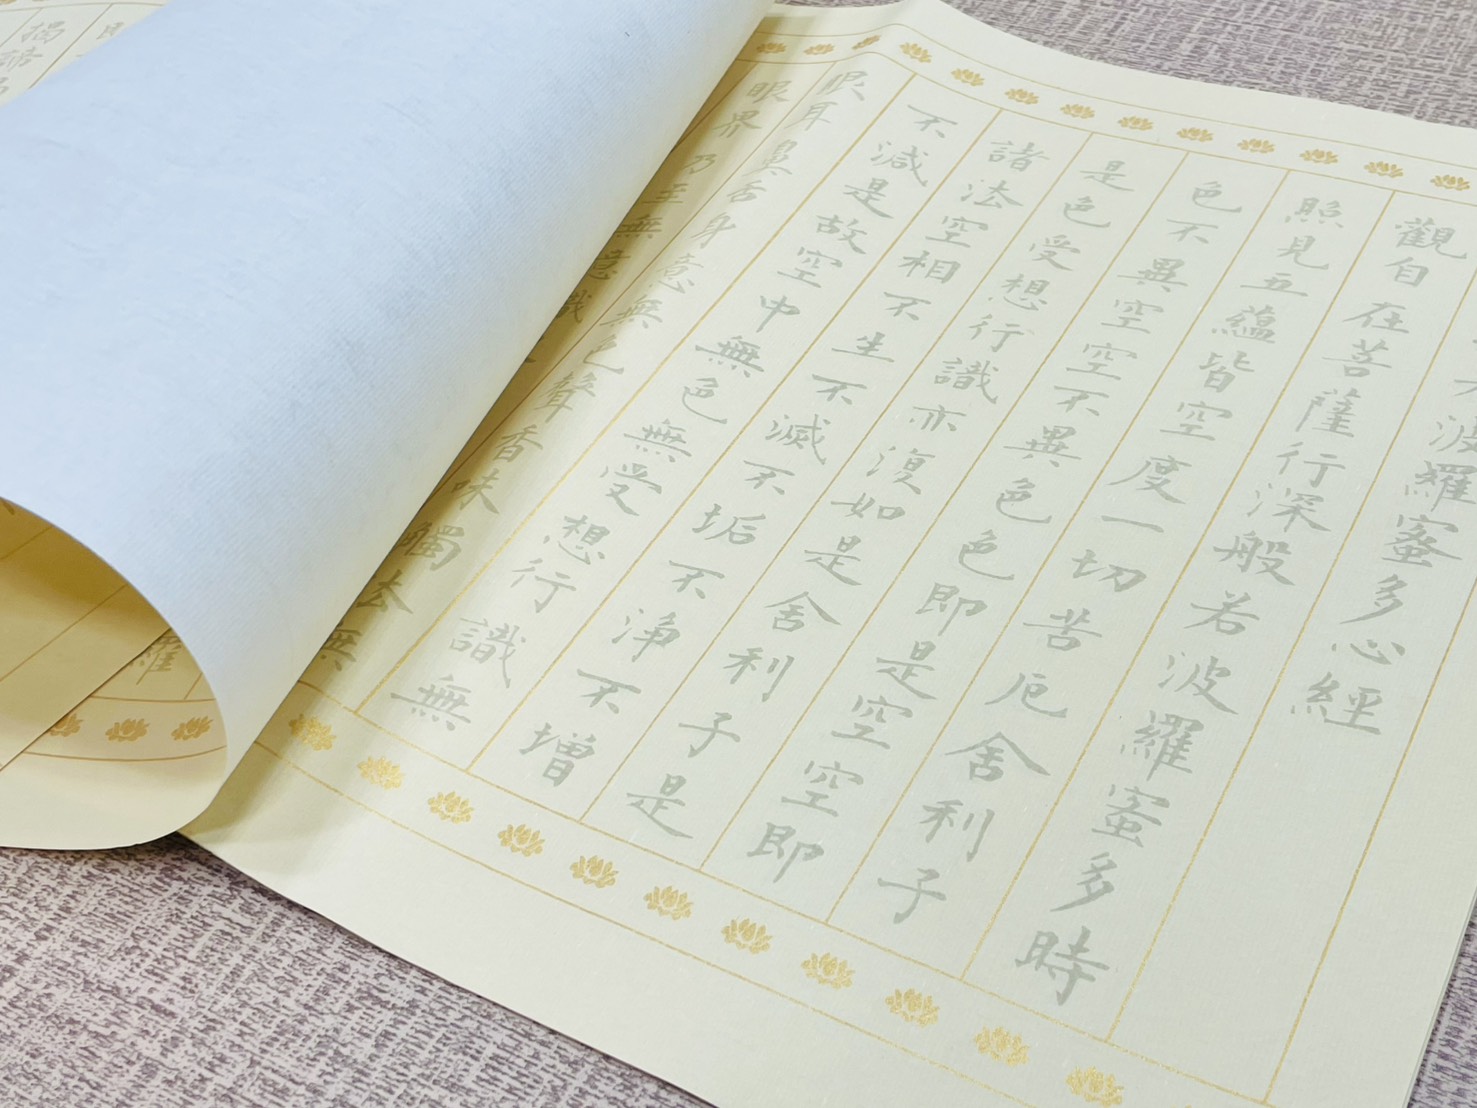 波羅蜜多心經
觀自在菩薩行深般若波羅蜜多時
照見五蘊皆空度一切苦厄舍利子
色不異空空不異色色即是空空即
是色受想行識亦復如是舍利子是
諸法空相不生不滅不垢不淨不增
不減是故空中無色無受想行識無
眼耳鼻舌身意無色聲香味觸法無
眼界乃至無意識
揭諦
羅